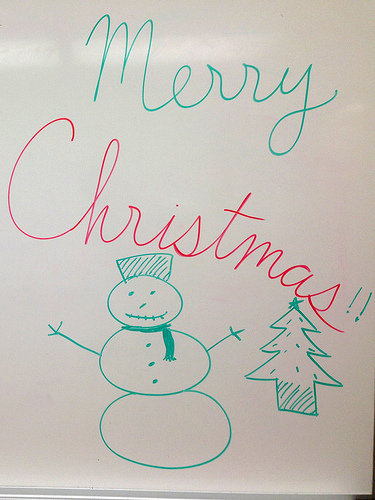 Merry
Christmas!!